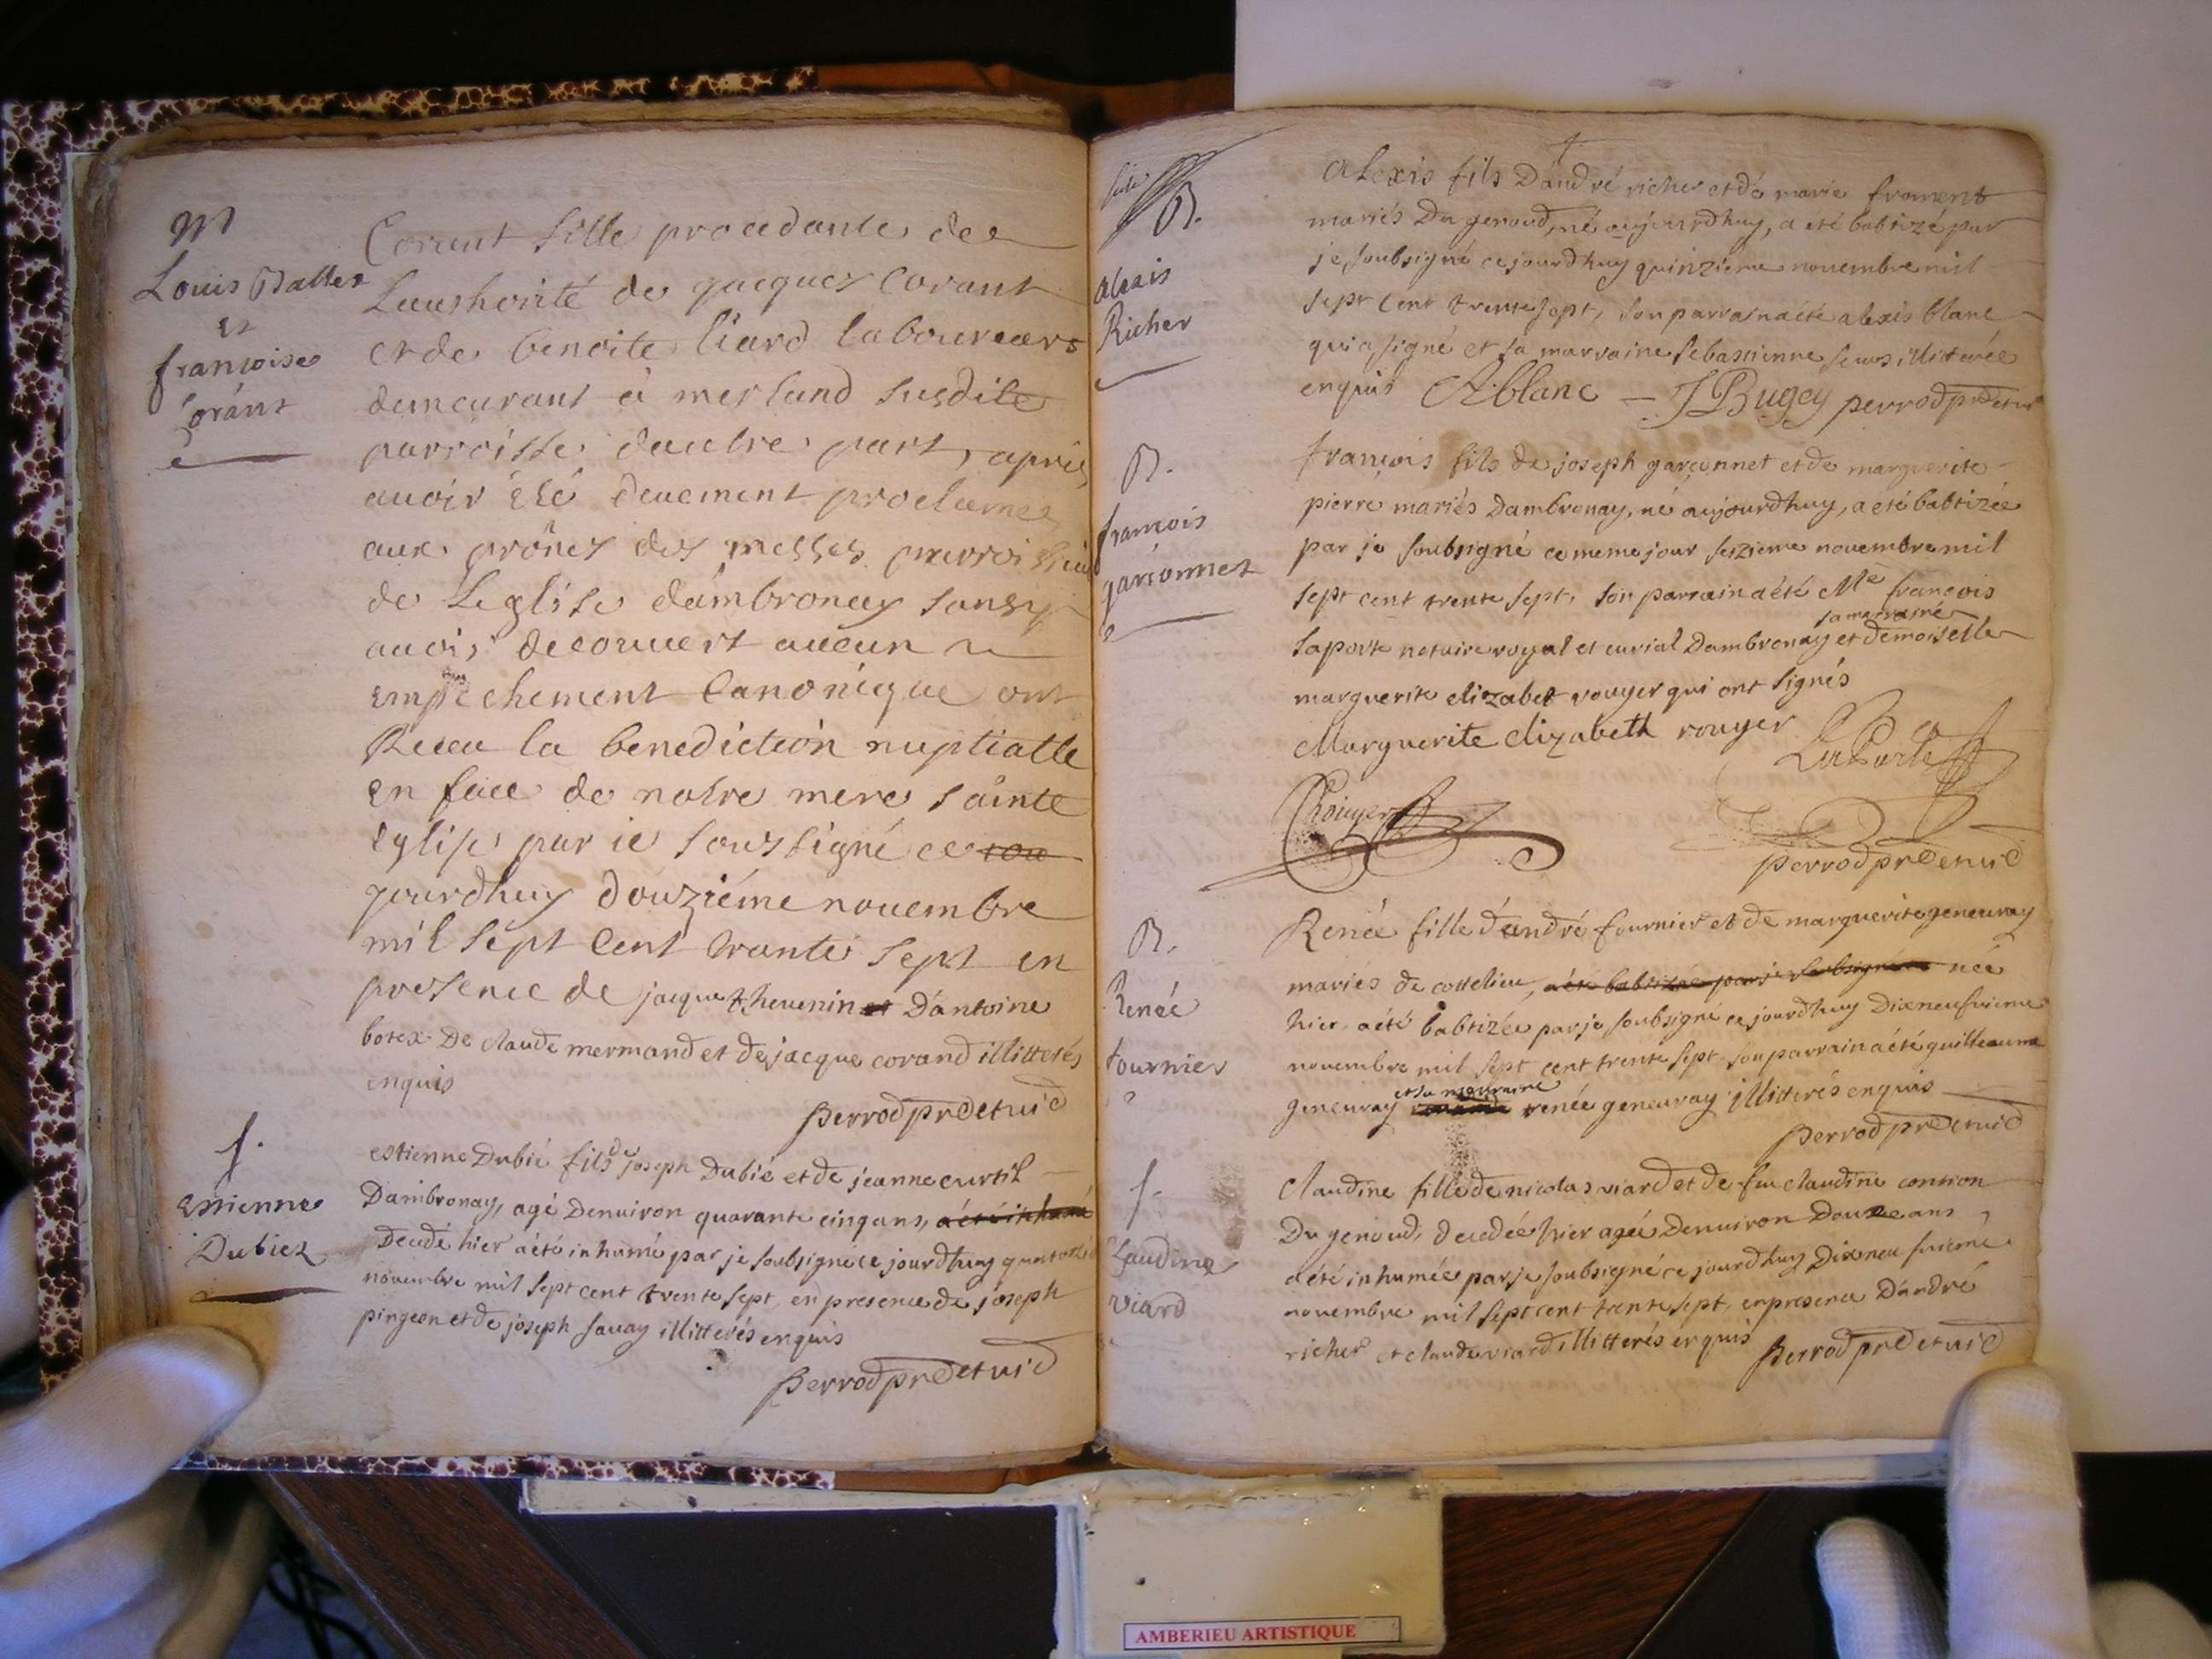 M
Louis Ballet
et
françoise
Corant
Corant fille procedante de
Lauthorité de jacques Corant
et de benoite liard laboureurs
demeurant à merland susdite
parroisse dautre part, apries
avoir été deuement proclamés
aux prônes des messes parroissi
de Leglise dambronay sans y
avoir decouvert aucun
empechement Canonique ont
Receu la benediction nuptialle
en face de notre mere sainte
Eglise par je soussigné ce
jourdhuy douziéme nouembre
mil sept Cent trante sept en
presence de jacque thevenin et D'antoine
botex De claude mermand et de jacque corand illitterés
enquis
perrod pre et vic
f.
estienne
Dubiez
estienne Dubié fils de joseph Dubié et de jeanne curtil
Dambronay, agé Denviron quarante cinq ans, a été inhumé
Decedé hier a été inhumé par je soubsigné ce jourdhuy quatorzie
novembre mil sept cent trente sept en presence de joseph
pingeon et de joseph savay illitterés enquis
perrod pre et vic
B.
alexis
Richer
alexis fils D'andré richer et de marie froment
mariés Du genoud, né aujourdhuy, a eté babtizé par
je soubsigné ce jourdhuy quinzieme novembre mil
sept cent trente sept, son parrain a été alexis blanc
qui a signé et sa marraine sebastienne illitterée
enquis A blanc J Bugey perrod pre et vic
B.
françois
garçonnet
françois fils de joseph garçonnet et de marguerite
pierre mariés Dambronay, né aujourdhuy, a été babtizée
par je soubsigné ce meme jour seizieme novembre mil
sept cent trente sept, son parrain a été Me françois
sa marraine
laporte notaire royal et curial Dambronay et demoiselle
marguerite elizabet rouyer qui ont signés
Marguerite elizabeth rouyer LaPorte
Rouyer
perrod pre et vic
B.
Renée
fournier
Renée fille d'andré fournier et de marguerite geneuray
mariés de cottelieu, a été babtizée par je soubsigné née
hier, a été babtizée par je soubsigné ce jourdhuy Dixneufvieme
novembre mil sept cent trente sept son parrain a été guilleaume
et sa marraine
geneuray renée geneuray illitterés enquis
perrod pre et vic
f.
Claudine
viard
Claudine fille de nicolas viard et de feu claudine
Du genoud, decedée hier agée Denviron Douze ans
a été inhumée par je soubsigné ce jourdhuy Dixneufvieme
novembre mil sept cent trente sept, en presence D'andré
richer et claude viard illitterés enquis perrod pre et vic
AMBERIEU ARTISTIQUE